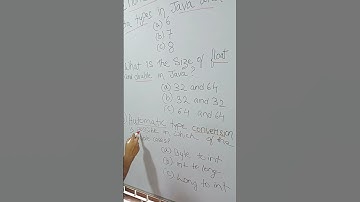 types in Java are
(a) 6
(b) 7
(c) 8
What is the size of float
and double in Java?
(a) 32 and 64
(b) 32 and 32
(c) 64 and 64
Automatic type conversion
is possible in which of the
cases?
(a) Byte to int
(b) Int to long
(c) Long to int